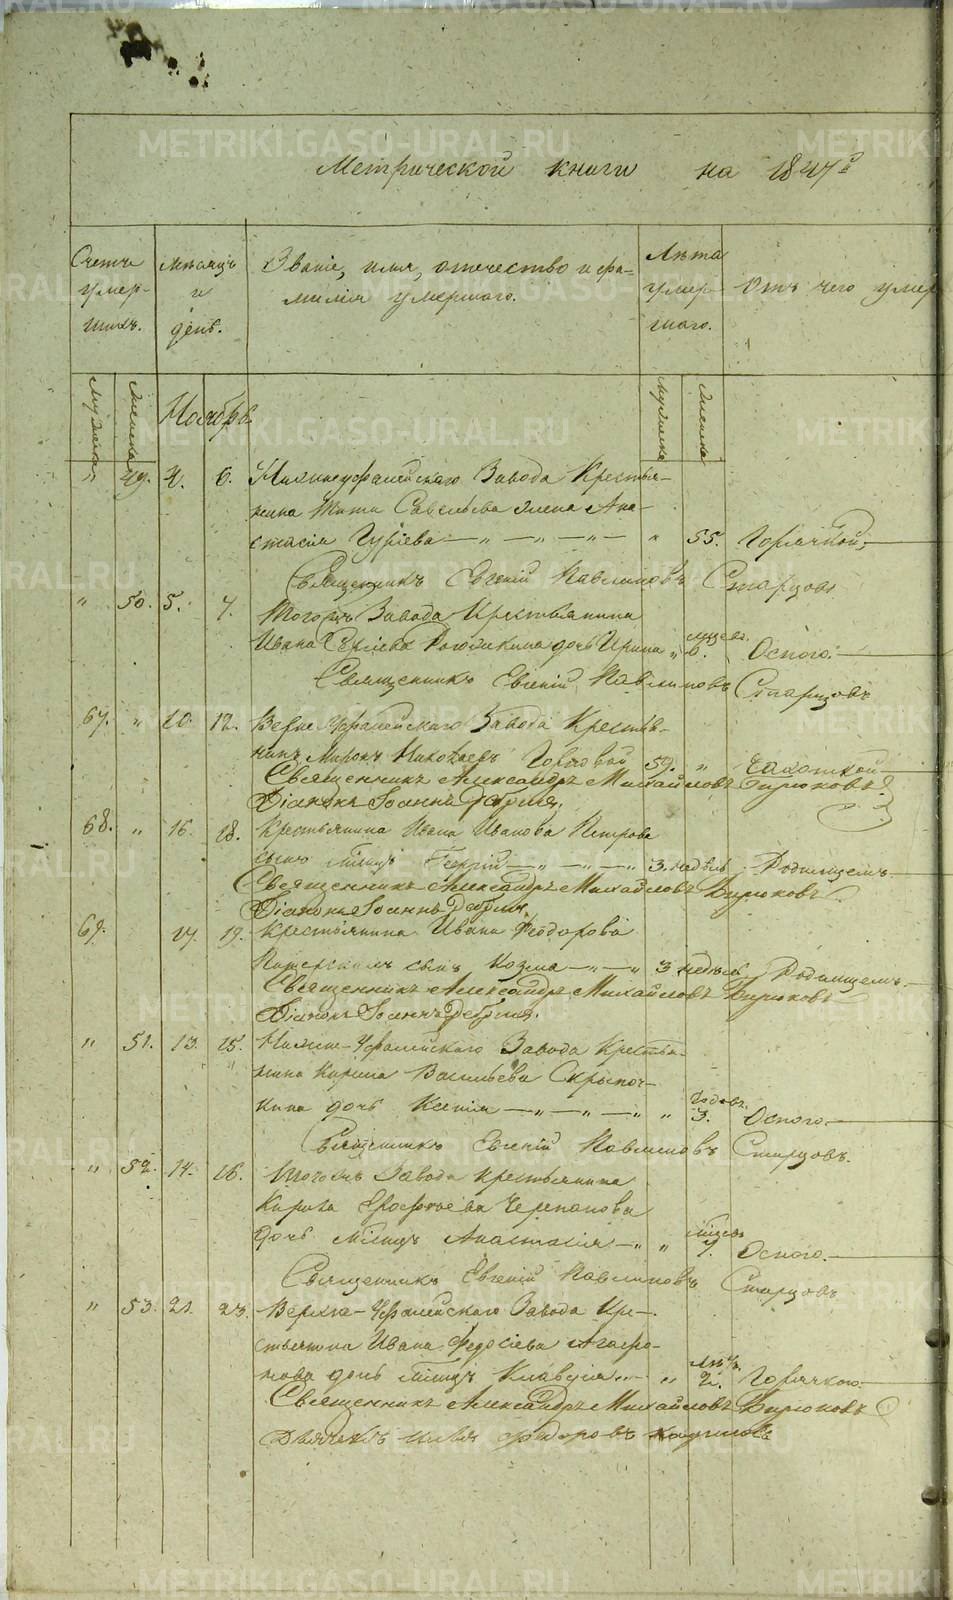 METRIKI.GASO-URAL.RU
Метрической книги на 1847й
Счетъ умершихъ.
Мѣсяцъ и день.
Званіе, имя, отчество и фамилія умершаго.
Лѣта умершаго.
Отъ чего умер
Мужеска Женска Ноябрь Мужеска Женска
" 49. 4. 6. Нижнеуфалейскаго Завода Крестья-
нина Тита Савельева жена Ана-
стасія Гурьева — " — " — " — " 55. Горячкой,
Священникъ Евгеній Павлиновъ Старцовъ
" 50. 5. 7. Тогожъ Завода Крестьянина
Ивана Сергіева дочь Ирина " мѣсяц. 6. Оспою.
Священникъ Евгеній Павлиновъ Старцовъ
67. " 10. 12. Верхне Уфалейскаго Завода Крестья-
нинъ Миронъ Николаевъ Горновой 59. " Чахоткой
Священникъ Александръ Михайловъ Бирюковъ
Діаконъ Іоаннъ
68. " 16. 18. Крестьянина Ивана Иванова Петрова
сынъ Георгій — " — " — " 3. недѣль Родимцемъ.
Священникъ Александръ Михайловъ Бирюковъ
Діаконъ Іоаннъ
69. 17. 19. Крестьянина Ивана Феодорова
сынъ Козма — " — " 3 недѣль Родимцемъ.
Священникъ Александръ Михайловъ Бирюковъ
Діаконъ Іоаннъ
" 51. 13. 15. Нижне-Уфалейскаго Завода Крестья-
нина Кирила Васильева Скрыпоч-
кина дочь Ксенія — " — " — " " Годовъ. 3. Оспою.
Священникъ Евгеній Павлиновъ Старцовъ.
" 52. 14. 16. Тогожъ Завода Крестьянина
Карпа Ерофеева Черепанова
дочь Анастасія — " " 7. Оспою.
Священникъ Евгеній Павлиновъ Старцовъ
" 53. 21. 23. Верхне-Уфалейскаго Завода Кре-
стьянина Ивана Федосіева Агафо-
нова дочь Клавдія " — " Лѣтъ. 2. Горячкою.
Священникъ Александръ Михайловъ Бирюковъ
Дьячекъ Илья Федоровъ